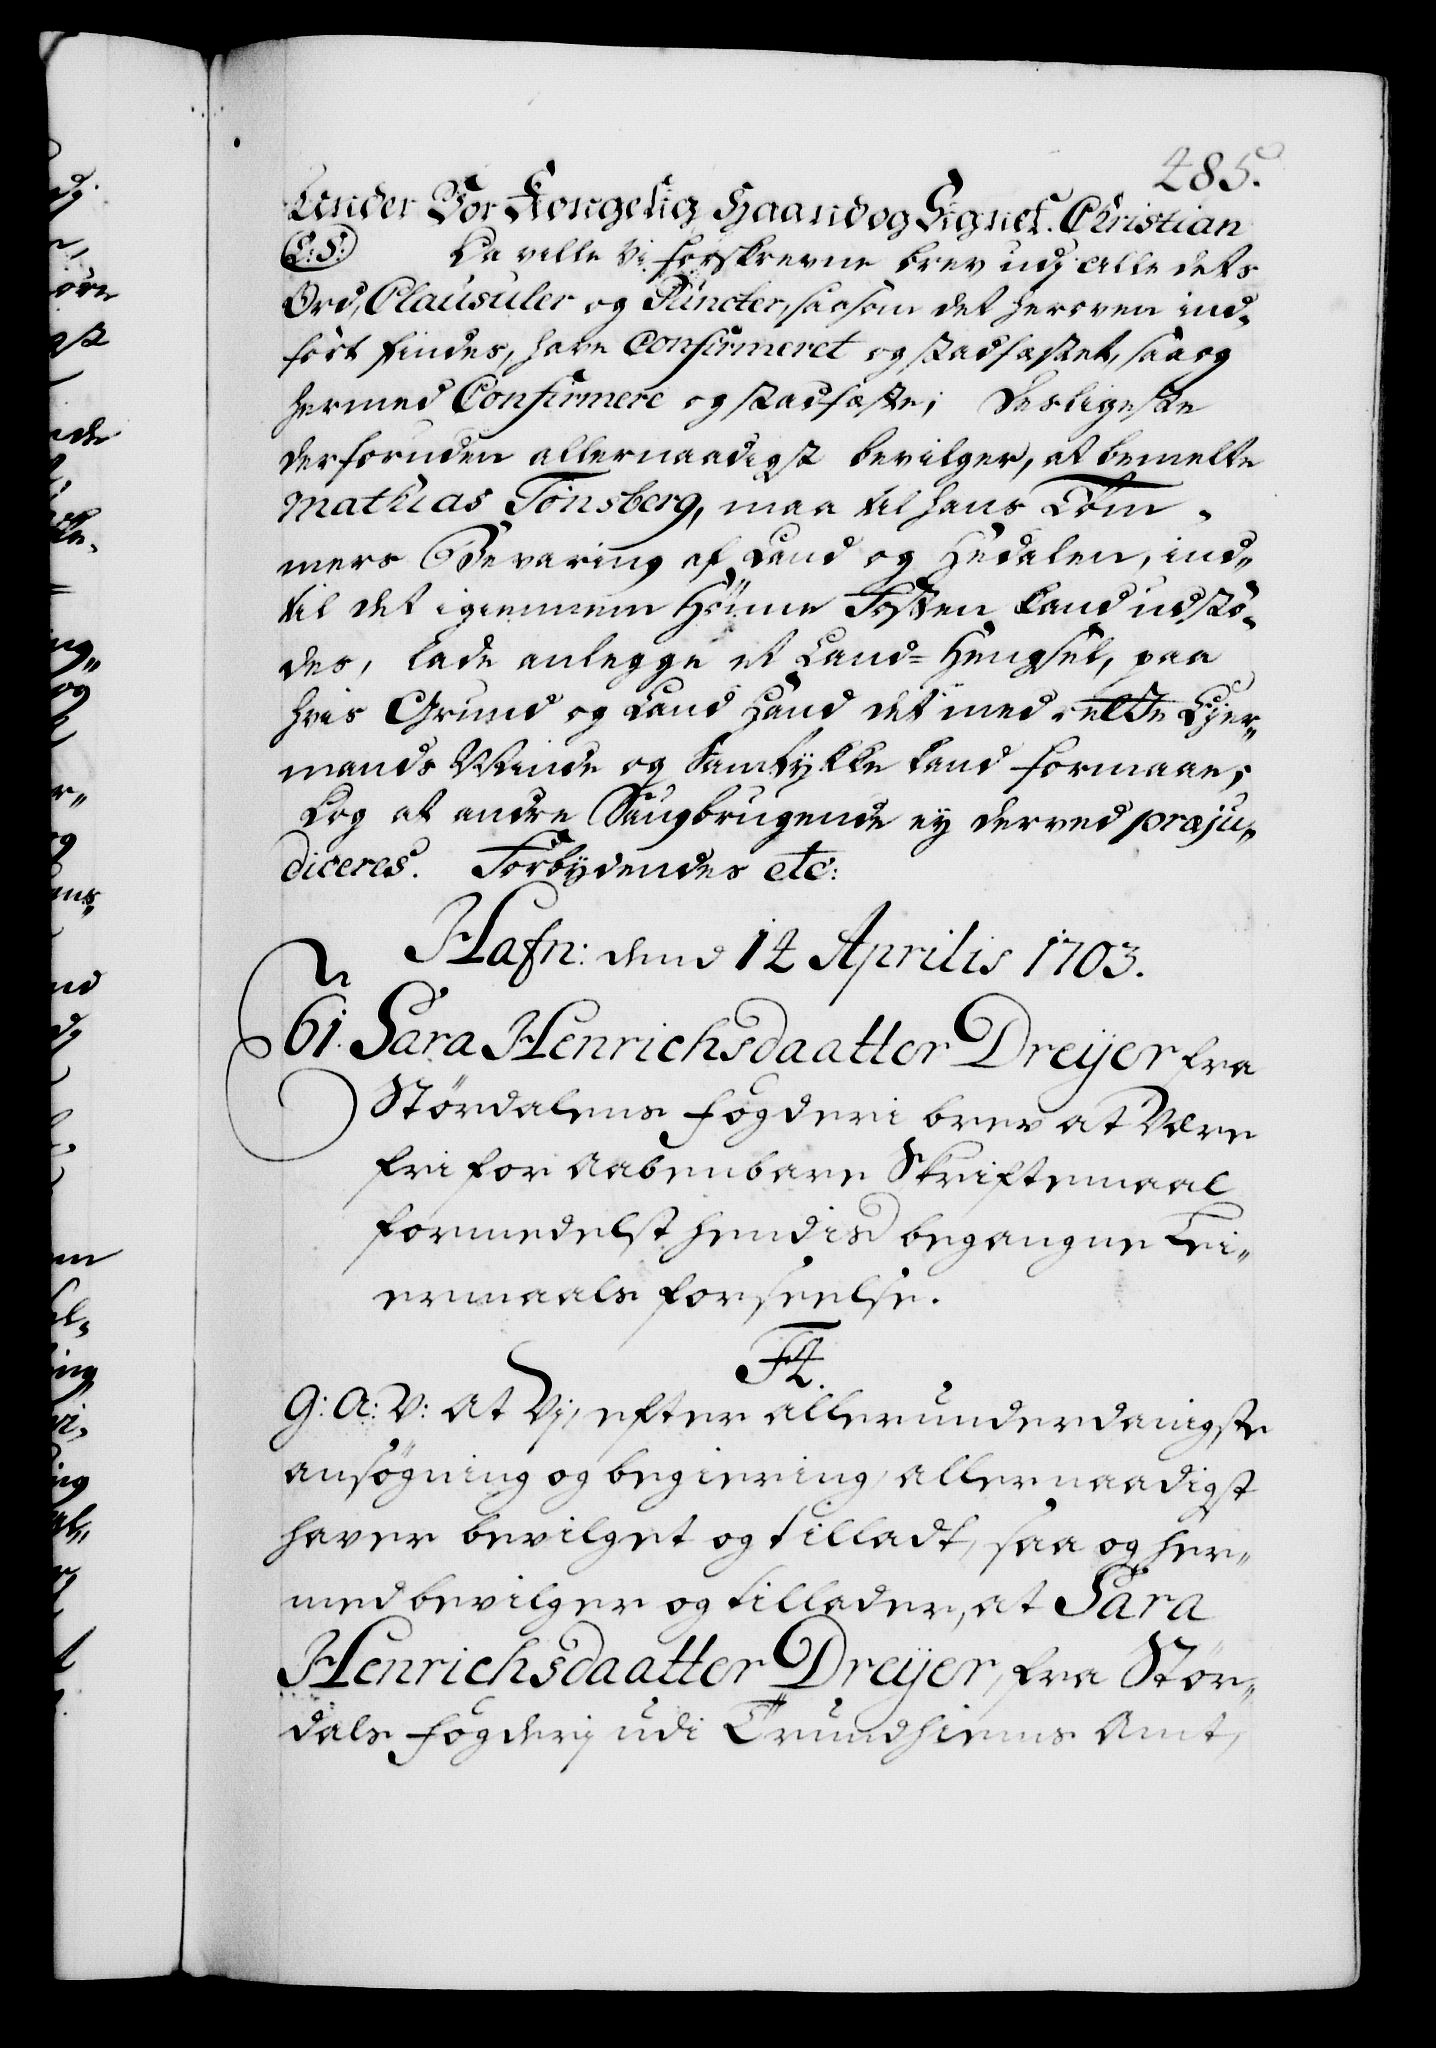 485.
Under Vor Kongelig Haand og Signet. Christian
(L:S:) Da ville Vi forskrevne brev udj alle dets
Ord, Clausuler og Puncter, saasom det herofven ind-
fört findes, have Confirmeret og stadfæstet, saa og
hermed Confirmere og stadfæste; Desligeste
derforuden allernaadigst bevilger, at bemelte
Mathias Tönsberg, maa til hans Töm-
mers Bevaring af Land og Hedalen, ind-
til det igiennem Hönne Fossen kand udstö-
des, lade anlegge et Land= Hengsel, paa
hvis Grund og Land Hand det med rette Ejer-
mands Minde og Samtykke kand formaae;
Dog at andre Saugbrugende ey derved præju-
diceres. Forbydendes etc:
Hafn: dend 14 Aprilis 1703.
61. Sara Henrichsdaatter Dreyer fra
Stördalens fogderi brev at være
fri for Aabenbare Skriftemaal
formedelst hendis begangne Lei-
ermaals forseelse.
F4.
G: A: V: At Vj, efter allerunderdanigste
ansögning og begiering, allernaadigst
haver bevilget og tilladt, saa og her-
med bevilger og tillader, at Sara
Henrichsdaatter Dreyer, fra Stör-
dals fogderj udi Trundhiems Amt,